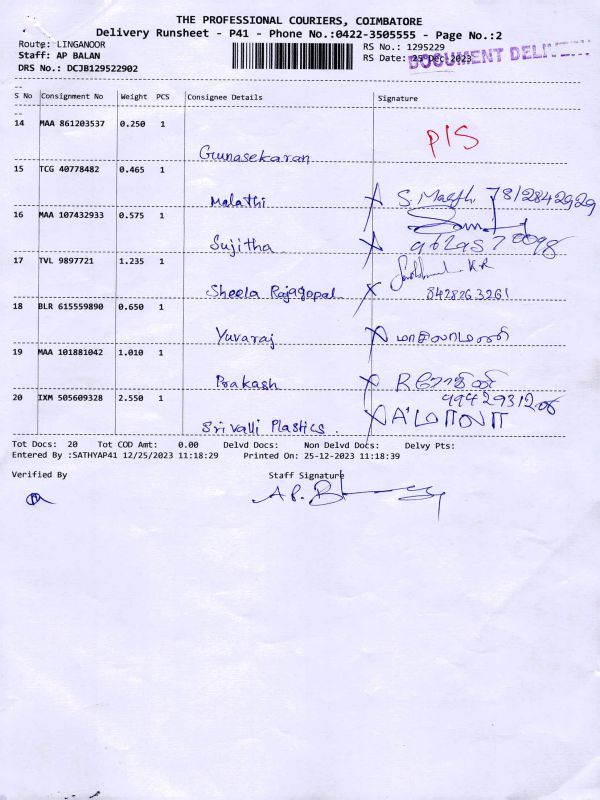 THE PROFESSIONAL COURIERS, COIMBATORE
Delivery Runsheet - P41 - Phone No.:0422-3505555 - Page No.:2
Route: LINGANOOR
RS No.: 1295229
Staff: AP BALAN
RS Date: 25-Dec-2023
DOCUMENT
DRS No.: DCJB129522902
S No Consignment No Weight PCS Consignee Details Signature
14 MAA 861203537 0.250 1
Gunasekaran
P/S
15 TCG 40778482 0.465 1
Malathi X S. 7812842929
16 MAA 107432933 0.575 1
Sujitha X
17 TVL 9897721 1.235 1
K R
Sheela Rajagopal X 8428263261
18 BLR 615559890 0.650 1
Yuvaraj X
19 MAA 101881042 1.010 1
Prakash X
20 IXM 505609328 2.550 1
Srivalli Plastics. X
Tot Docs: 20 Tot COD Amt: 0.00 Delvd Docs: Non Delvd Docs: Delvy Pts:
Entered By :SATHYAP41 12/25/2023 11:18:29 Printed On: 25-12-2023 11:18:39
Verified By Staff Signature
A P.